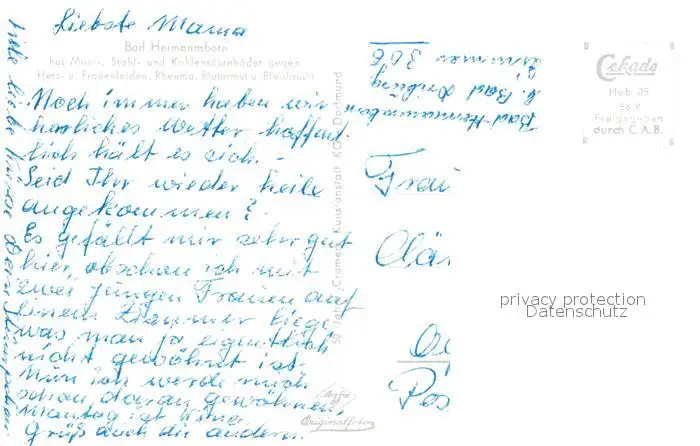 Liebste Mama
Bad Hermannsborn
hat Moor-, Stahl- und Kohlensäurebäder gegen
Herz- u. Frauenleiden, Rheuma, Blutarmut u. Bleichsucht
Noch immer haben wir
herrliches Wetter hoffent-
lich hält es sich. -
Seid Ihr wieder heile
angekommen?
Es gefällt mir sehr gut
hier, obschon ich mit
zwei jungen Frauen auf
einem Zimmer liege,
was man ja eigentlich
nicht gewöhnt ist.
Nun ich werde mich
schon daran gewöhnen.
Montag ist Kino.
Grüß auch die andern.
Viele liebe Grüsse Dein
50 Jahre Cramers Kunstanstalt KG, Dortmund
Agfa
Originalfoto
Bad Hermannsborn
b. Bad Driburg
Zimmer 306
Frau
Clär
Pos
Cekade
Heb. 05
56 2
Freigegeben
durch C.A.B.
privacy protection
Datenschutz